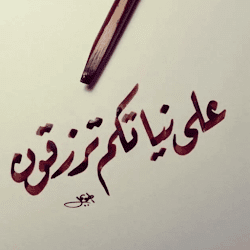 على نياتكم ترزقون